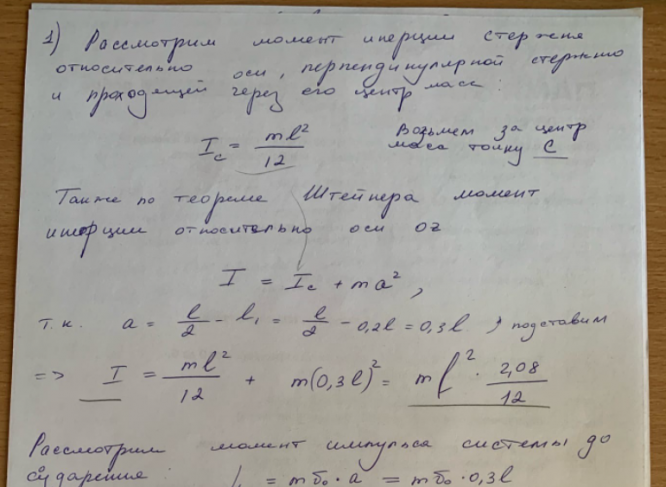 1) Рассмотрим момент инерции стержня
относительно оси, перпендикулярной стержню
и проходящей через его центр масс:
I_c = ml²/12
Возьмем за центр
масса точку C
Также по теореме Штейнера момент
инерции относительно оси oz
I = I_c + ma²,
т.к. a = l/2 - l₁ = l/2 - 0,2l = 0,3l, подставим
=> I = ml²/12 + m(0,3l)² = ml² · 2,08/12
Рассмотрим момент импульса системы до
сударения = mб₀ · a = mб₀ · 0,3l